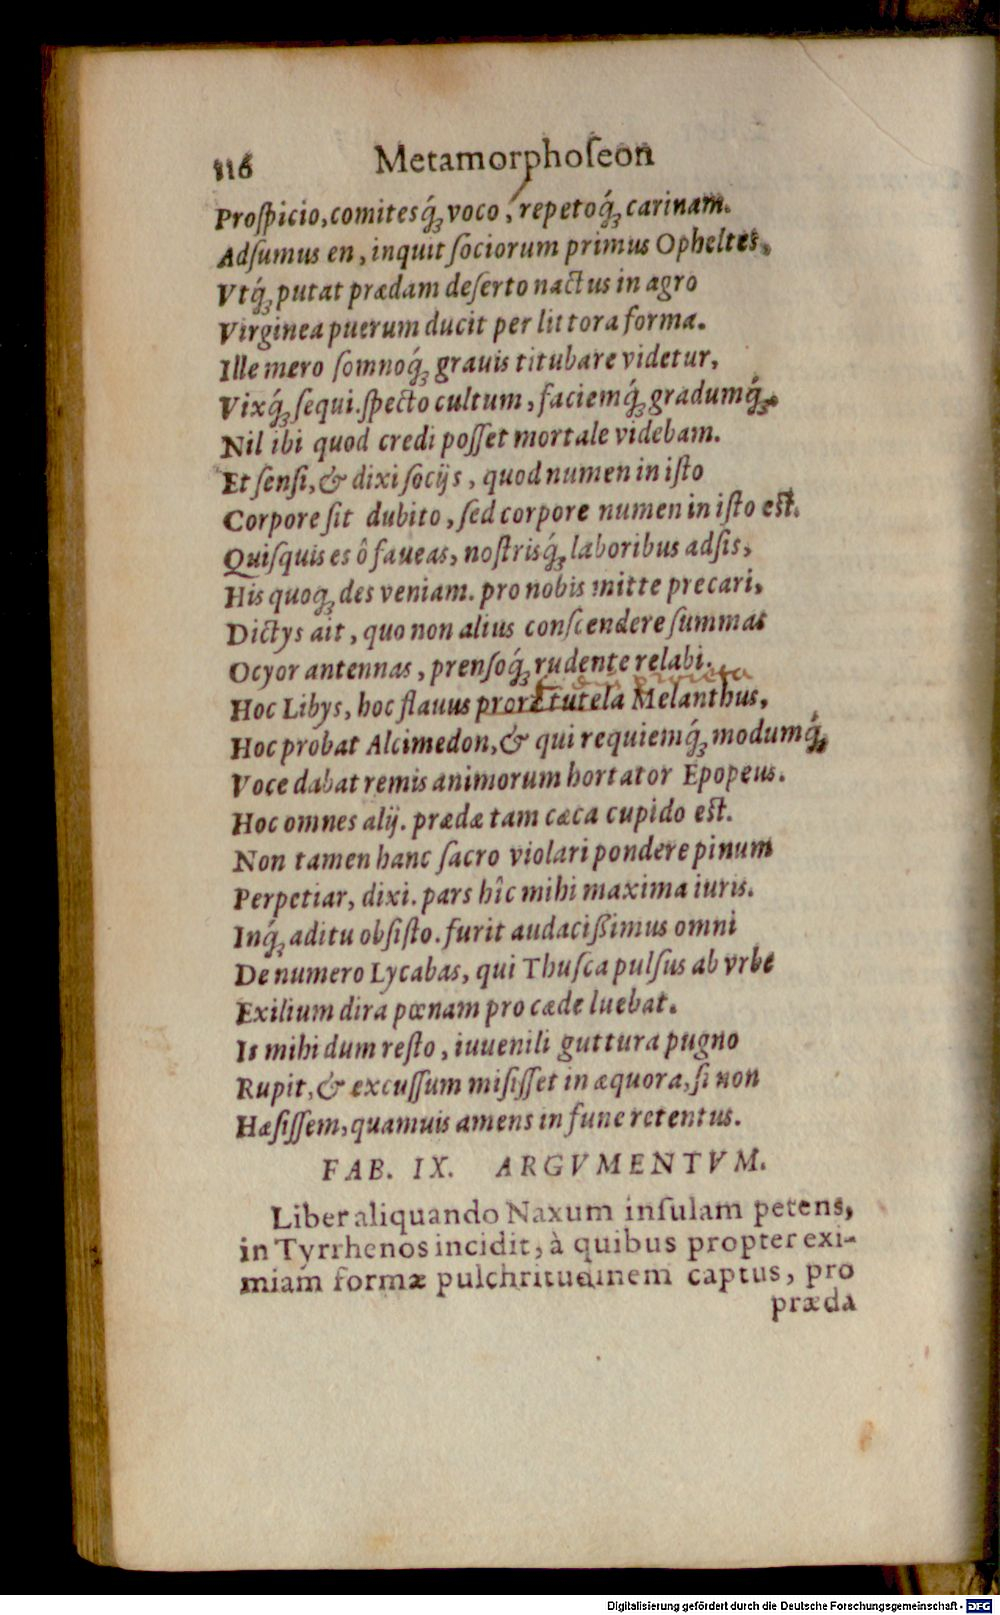 116 Metamorphoſeon
Proſpicio, comitesq́; voco, repetoq́; carinam.
Adſumus en, inquit ſociorum primus Opheltes,
Vtq́; putat prædam deſerto nactus in agro
Virginea puerum ducit per littora forma.
Ille mero ſomnoq́; grauis titubare videtur,
Vixq́; ſequi. ſpecto cultum, faciemq́; gradumq́;
Nil ibi quod credi poſſet mortale videbam.
Et ſenſi, & dixi ſocijs, quod numen in iſto
Corpore ſit dubito, ſed corpore numen in iſto eſt.
Quiſquis es ô faueas, noſtrisq́; laboribus adſis,
His quoq; des veniam. pro nobis mitte precari,
Dictys ait, quo non alius conſcendere ſummas
Ocyor antennas, prenſoq́; rudente relabi.
Hoc Libys, hoc flauus proræ tutela Melanthus,
Hoc probat Alcimedon, & qui requiemq́; modumq́;
Voce dabat remis animorum hortator Epopeus.
Hoc omnes alij. prædæ tam cæca cupido eſt.
Non tamen hanc ſacro violari pondere pinum
Perpetiar, dixi. pars hîc mihi maxima iuris.
Inq́; aditu obſiſto. furit audacißimus omni
De numero Lycabas, qui Thuſca pulſus ab vrbe
Exilium dira pœnam pro cæde luebat.
Is mihi dum reſto, iuuenili guttura pugno
Rupit, & excuſſum miſiſſet in æquora, ſi non
Hæſiſſem, quamuis amens in fune retentus.
FAB. IX. ARGVMENTVM.
Liber aliquando Naxum inſulam petens,
in Tyrrhenos incidit, à quibus propter exi-
miam formæ pulchritudinem captus, pro
præda
Digitalisierung gefördert durch die Deutsche Forschungsgemeinschaft - DFG